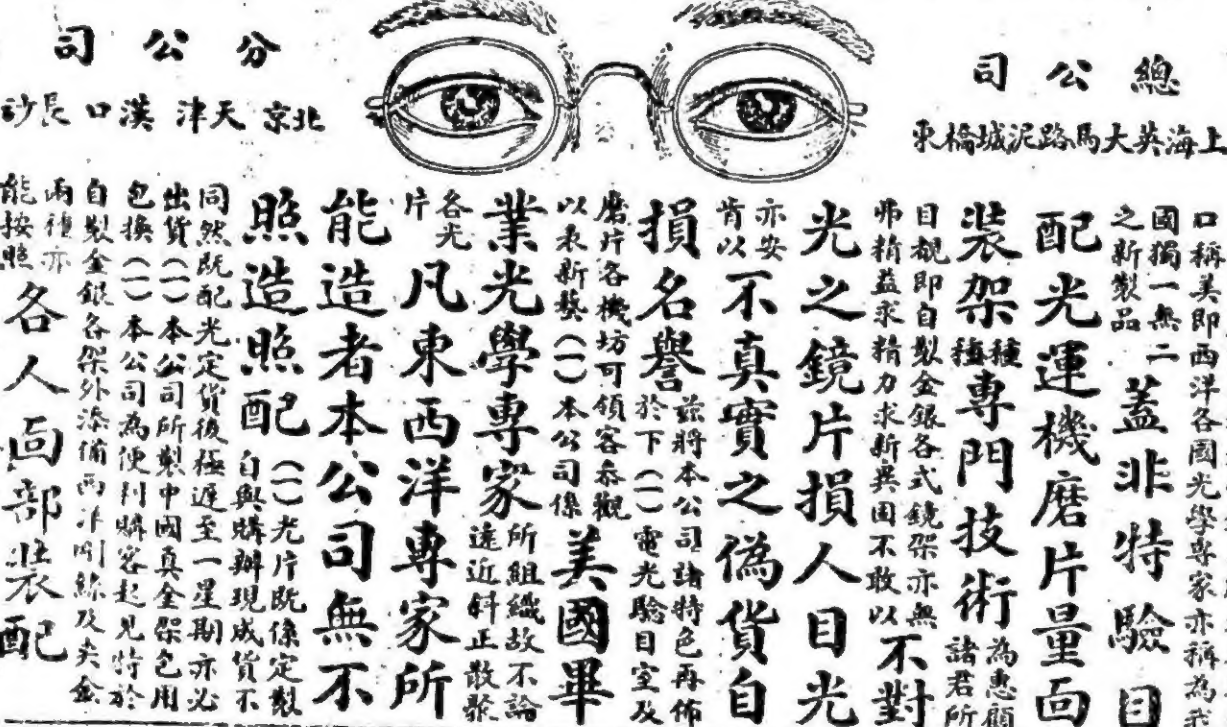 總公司
上海英大馬路泥城橋東
分公司
北京 天津 漢口 長沙
稱美即西洋各國光學專家亦稱為我
國獨一無二
之新製品
蓋非特驗目
配光運機磨片量面
裝架種種專門技術為惠顧
諸君所
目覩即自製金銀各式鏡架亦無
弗精益求精力求新異固不敢以
不對
光之鏡片損人目光
亦安
肯以
不真實之偽貨自
損名譽茲將本公司諸特色再佈
於下(一)電光驗目室及
磨片各機坊可領客參觀
以表新藝(一)本公司係
美國畢
業光學專家所組織故不論
遠近斜正散聚
各光
片
凡東西洋專家所
能造者本公司無不
照造照配(一)光片既係定製
自與購辦現成貨不
同然既配光定貨後極遲至一星期亦必
出貨(一)本公司所製中國真金架包用
包換(一)本公司為便利購客起見特於
自製金銀各架外添備西洋鋼絲及夾金
兩種亦
能按照
各人面部裝配